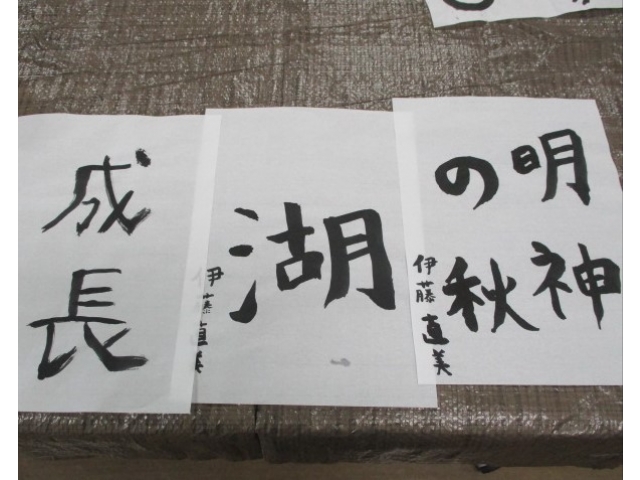 成長
湖
伊藤直美
明神
の秋
伊藤直美